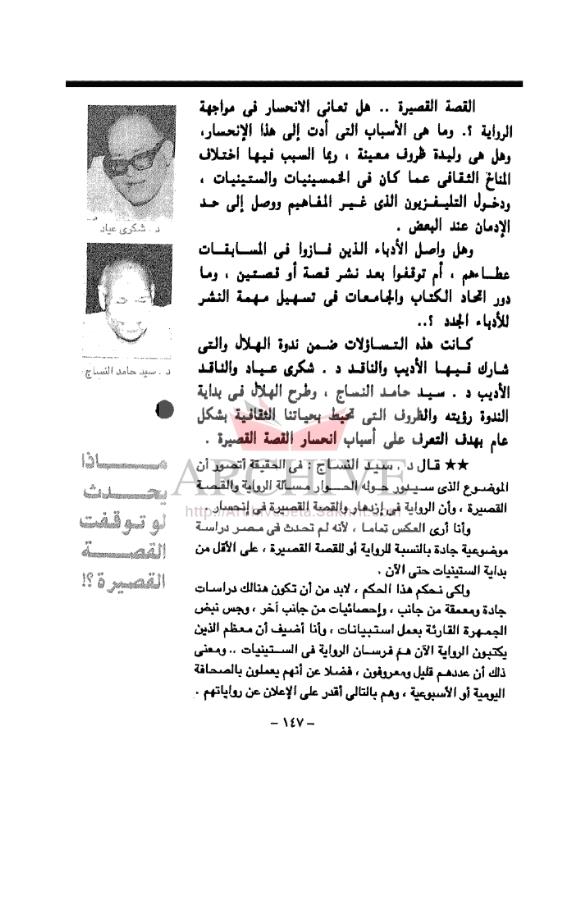 القصة القصيرة .. هل تعانى الانحسار فى مواجهة
الرواية ؟. وما هى الأسباب التى أدت إلى هذا الإنحسار،
وهل هى وليدة ظروف معينة ، ربما السبب فيها اختلاف
المناخ الثقافى عما كان فى الخمسينيات والستينيات ،
ودخول التليفزيون الذى غير المفاهيم ووصل إلى حد
الإدمان عند البعض .
وهل واصل الأدباء الذين فازوا فى المسابقات
عطاءهم ، أم توقفوا بعد نشر قصة أو قصتين ، وما
دور اتحاد الكتاب والجامعات فى تسهيل مهمة النشر
للأدباء الجدد ؟..
كانت هذه التساؤلات ضمن ندوة الهلال والتى
شارك فيها الأديب والناقد د . شكرى عياد والناقد
الأديب د . سيد حامد النساج ، وطرح الهلال فى بداية
الندوة رؤيته والظروف التى تحيط بحياتنا الثقافية بشكل
عام بهدف التعرف على أسباب انحسار القصة القصيرة .
★★ قال د . سيد النساج : فى الحقيقة أتصور أن
الموضوع الذى سيدور حوله الحوار مسألة الرواية والقصة
القصيرة ، وأن الرواية فى إزدهار والقصة القصيرة فى إنحسار .
وأنا أرى العكس تماما ، لأنه لم تحدث فى مصر دراسة
موضوعية جادة بالنسبة للرواية أو للقصة القصيرة ، على الأقل من
بداية الستينيات حتى الآن .
ولكى نحكم هذا الحكم ، لابد من أن تكون هنالك دراسات
جادة ومعمقة من جانب ، وإحصائيات من جانب آخر ، وجس نبض
الجمهرة القارئة بعمل استبيانات ، وأنا أضيف أن معظم الذين
يكتبون الرواية الآن هم فرسان الرواية فى الستينيات .. ومعنى
ذلك أن عددهم قليل ومعروفون ، فضلا عن أنهم يعملون بالصحافة
اليومية أو الأسبوعية ، وهم بالتالى أقدر على الإعلان عن رواياتهم .
د . شكرى عياد
د . سيد حامد النساج
مــاذا
يحدث
لو توقفت
القصة
القصيرة ؟!
ARCHIVE
- ١٤٧ -